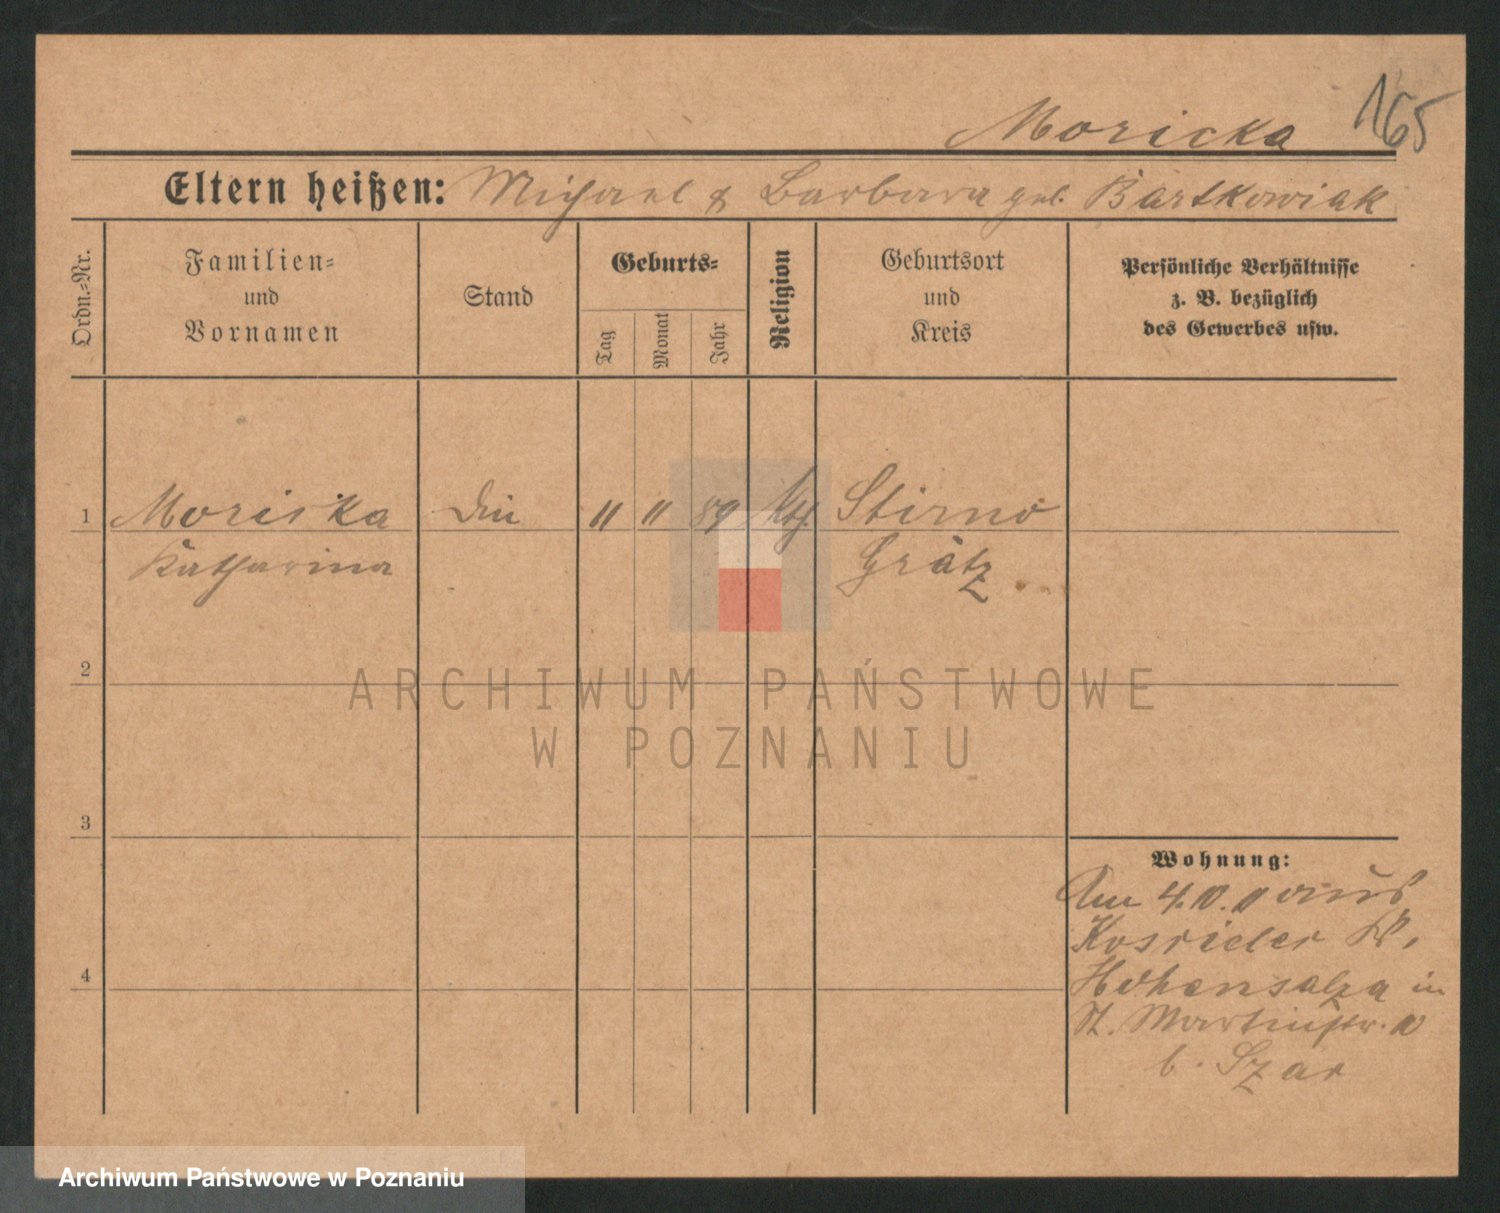 165
Moricka
Eltern heißen: Michael & Barbara geb. Bartkowiak
Ordn.-Nr.
Familien-
und
Vornamen
Stand
Geburts-
Tag
Monat
Jahr
Religion
Geburtsort
und
Kreis
Persönliche Verhältnisse
z. B. bezüglich
des Gewerbes usw.
1 Moricka 11 11 89 Kth. Stirno
Katharina Grätz
2
3
4
Wohnung:
Am 4. 10. 11 aus
Kr.
Hohensalza in
St. Martinstr. 10
b. Szar
ARCHIWUM PAŃSTWOWE
W POZNANIU
Archiwum Państwowe w Poznaniu